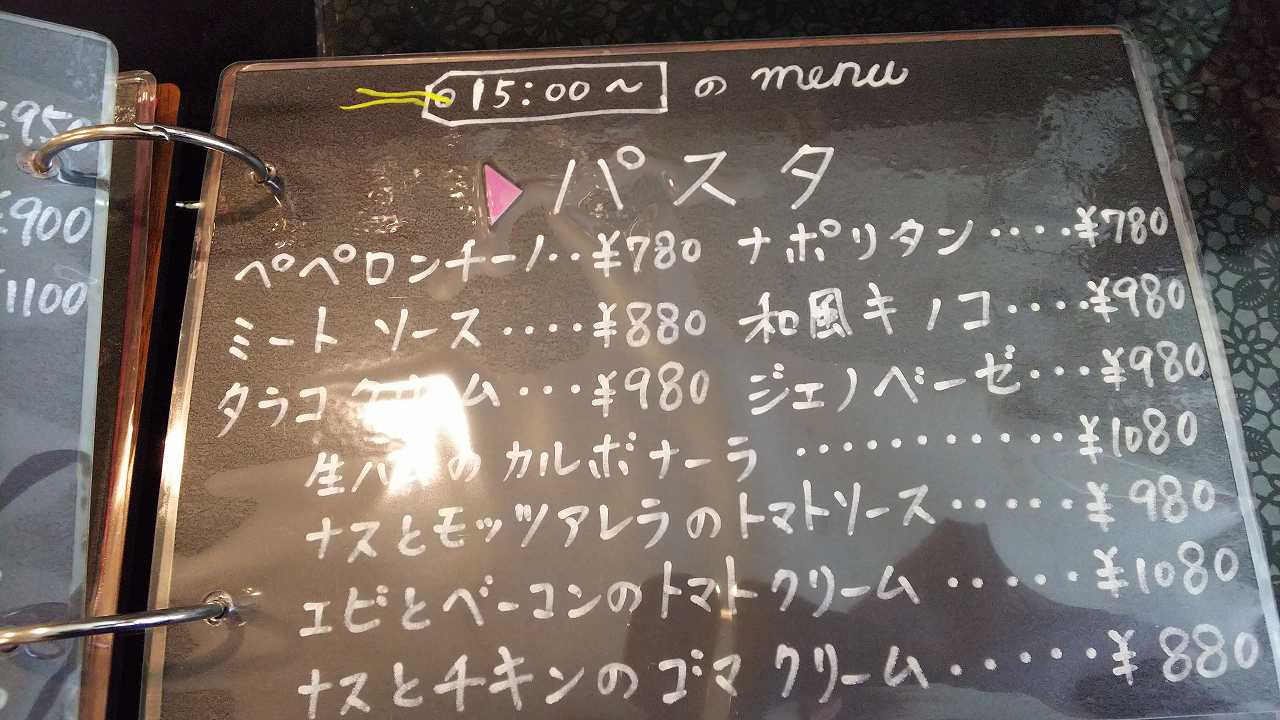 ¥950
¥900
¥1100
15:00~ の menu
パスタ
ペペロンチーノ‥¥780 ナポリタン‥‥¥780
ミートソース‥‥¥880 和風キノコ‥‥¥980
タラコクリーム…¥980 ジェノベーゼ…¥980
生ハムのカルボナーラ ………… ¥1080
ナスとモッツアレラのトマトソース……¥980
エビとベーコンのトマトクリーム ……¥1080
ナスとチキンのゴマクリーム……¥880